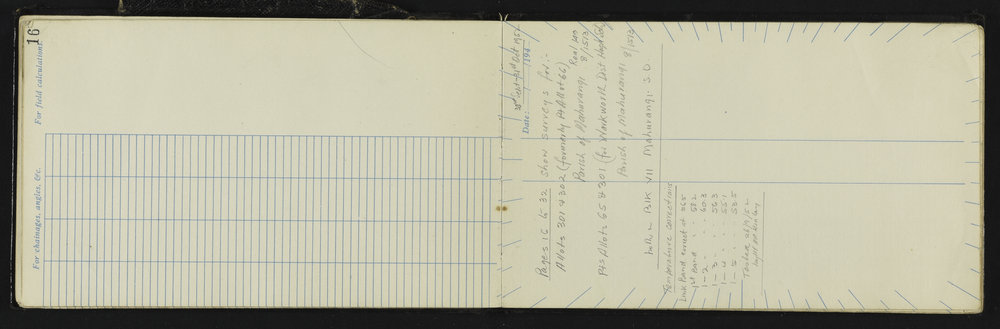 16
For field calculations
For chainages, angles, &c.
Date: Sept 2nd Oct 195
/194
Pages 16 to 32 show surveys for:-
Allots 301 & 302 (formerly Pt Allot 66)
Parish of Mahurangi
8/1513
Pts Allots 65 & 301 (for Warkworth Dist Hospital)
Parish of Mahurangi 8/1513
Blk VII Mahurangi S.D.
Temperature corrections
Link Band correct at 56.5
1st Band . . 58.2
1 - 2 . . 60.3
1 - 3 . . 56.3
1 - 4 . . 55.1
1 - 5 . . 53.5
Tested 26/9/52